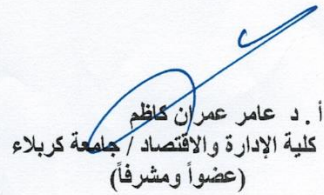 أ . د عامر عمران كاظم
كلية الإدارة والاقتصاد / جامعة كربلاء
(عضواً ومشرفاً)